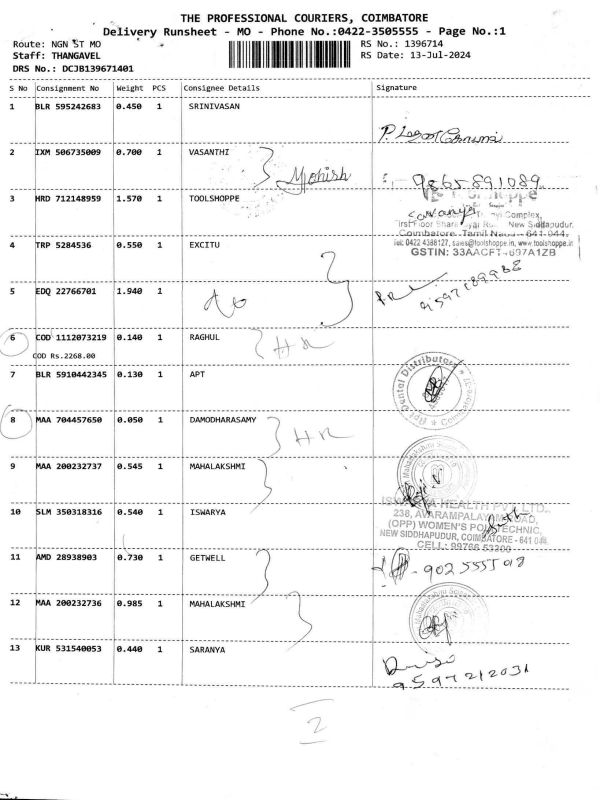 THE PROFESSIONAL COURIERS, COIMBATORE
Delivery Runsheet - MO - Phone No.:0422-3505555 - Page No.:1
Route: NGN ST MO
RS No.: 1396714
Staff: THANGAVEL
RS Date: 13-Jul-2024
DRS No.: DCJB139671401
S No Consignment No Weight PCS Consignee Details Signature
1 BLR 595242683 0.450 1 SRINIVASAN
2 IXM 506735009 0.700 1 VASANTHI
Mohish
9865891089
3 HRD 712148959 1.570 1 TOOLSHOPPE
Complex,
First Floor New Siddapudur,
Coimbatore Tamil Nadu - 641 044.
Tel: 0422 4388127, sales@toolshoppe.in, www.toolshoppe.in
4 TRP 5284536 0.550 1 EXCITU
GSTIN: 33AACFT 697A1ZB
5 EDQ 22766701 1.940 1
6 COD 1112073219 0.140 1 RAGHUL
COD Rs.2268.00
HR
7 BLR 5910442345 0.130 1 APT
Dental Distributors
8 MAA 704457650 0.050 1 DAMODHARASAMY
HR
9 MAA 200232737 0.545 1 MAHALAKSHMI
10 SLM 350318316 0.540 1 ISWARYA
HEALTH PVT LTD.,
238, AVARAMPALAYAM ROAD,
(OPP) WOMEN'S POLYTECHNIC,
NEW SIDDHAPUDUR, COIMBATORE - 641 044.
CELL: 99766 53200
11 AMD 28938903 0.730 1 GETWELL
12 MAA 200232736 0.985 1 MAHALAKSHMI
13 KUR 531540053 0.440 1 SARANYA
9597212031
2